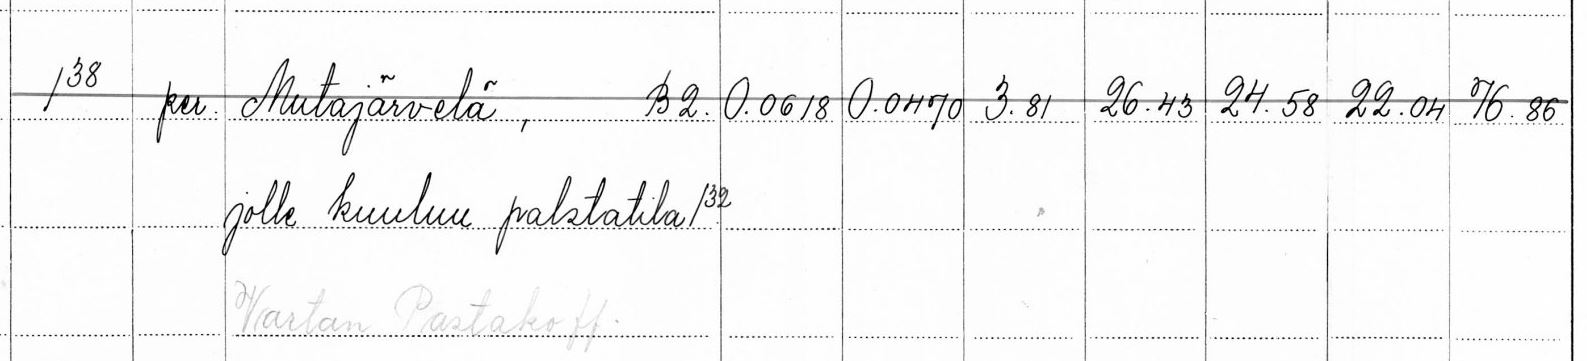 1³⁸ per. Mutajärvelä, B 2. 0.0618 0.0470 3.81 26.43 24.58 22.04 76.86
jolle kuuluu palstatila 1³²
Vartan Pastakoff.